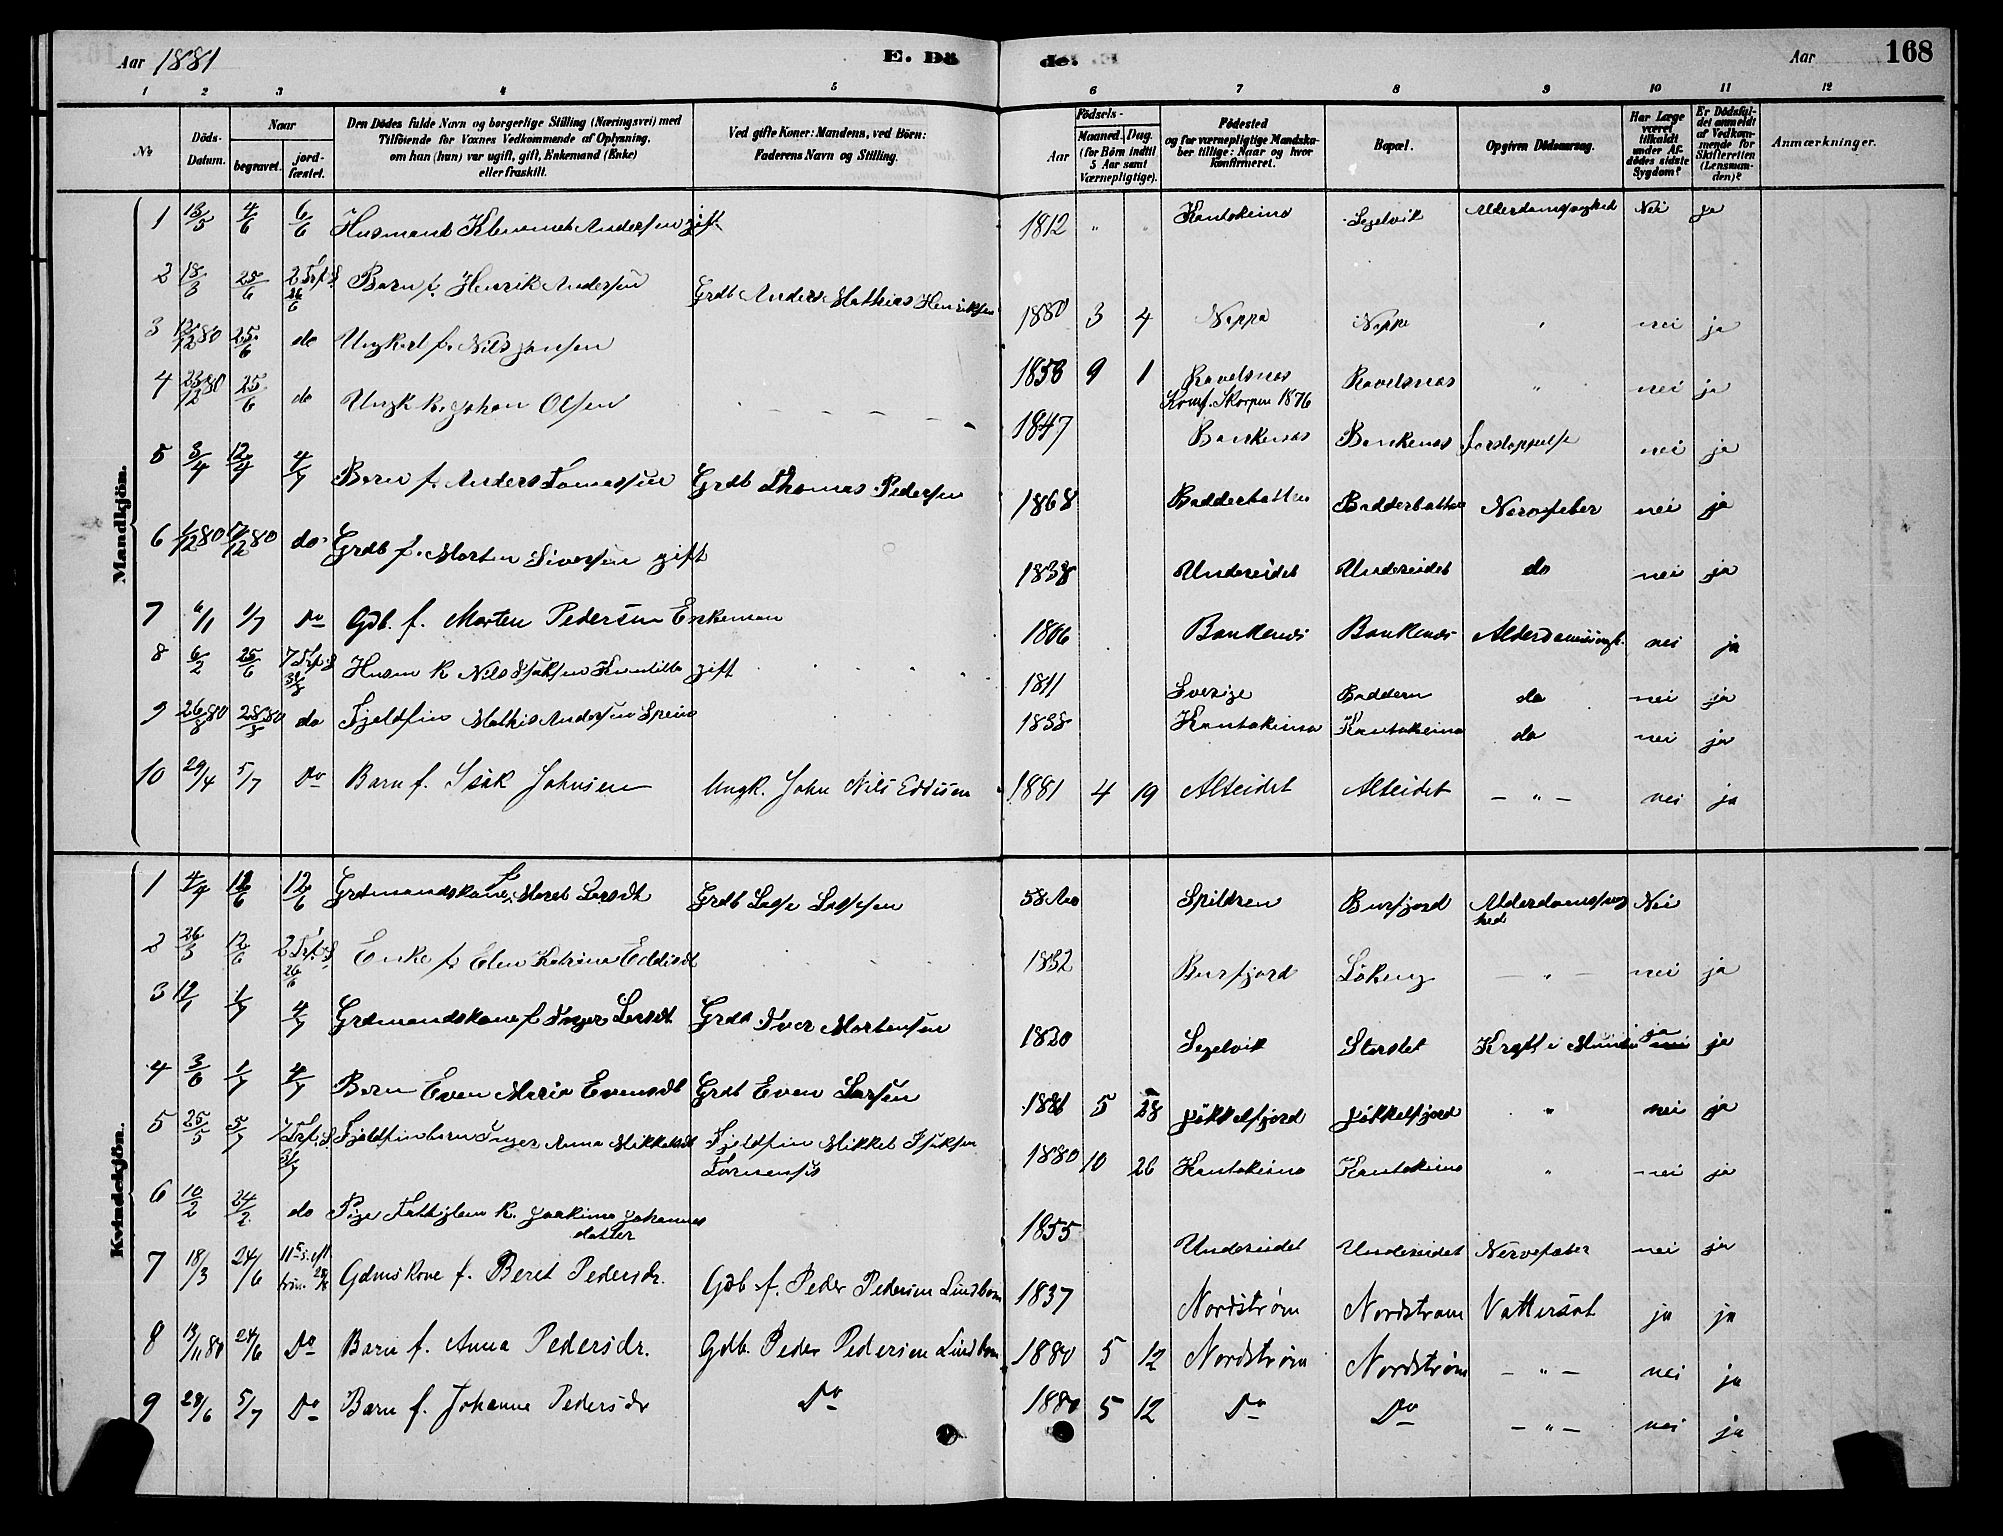 Aar 1881 E. Dö de. Aar 168
1 2 3 4 5 6 7 8 9 10 11 12
No. Döds-Datum. Naar begravet. jordfæstet. Den Dödes fulde Navn og borgerlige Stilling (Næringsvei) med Tilföiende for Voxnes Vedkommende af Oplysning, om han (hun) var ugift, gift, Enkemand (Enke) eller fraskilt. Ved gifte Koner: Mandens, ved Börn: Faderens Navn og Stilling. Födsels- Aar Maaned. Dag. (for Börn indtil 5 Aar samt Værnepligtige). Födested og for værnepligtige Mandskaber tillige: Naar og hvor konfirmeret. Bopæl. Opgiven Dödsaarsag. Har Læge været tilkaldt under Afdödes sidste Sygdom? Er Dödsfaldet anmeldt af Vedkommende for Skifteretten (Lensmanden)? Anmærkninger.
Mandkjön.
1 13/5 4/6 6/6 Husmand Klemmet Andersen gift 1812 " " Kautokeino Segelvik Alderdomssvaghed Nei ja
2 18/3 25/6 26/6 Barn f. Henrik Andersen Grdb Anders Mathias Henriksen 1880 3 4 Nippa Nippe " nei ja
3 12/12 80 25/6 do Ungkarl f. Nils Jansen 1858 9 1 Ravelsnes Konf. Skorpen 1876 Ravelsnes " nei ja
4 23/12 80 25/6 do Ungk R. Johan Olsen 1847 Bankenes Bankenes forstoppelse nei ja
5 3/4 12/4 4/7 Barn f. Anders Tomassen Grdb Thomas Pedersen 1868 Badderbotten Badderbotten Nervefeber nei ja
6 1/12 80 17/12 80 do Grdb f. Morten Siversen gift 1838 Undereidet Undereidet do nei ja
7 6/1 1/7 Do Gdb. f. Morten Pedersen Enkeman 1806 Bankenes Bankenes nei ja
8 6/2 25/6 Husm k Nils Isaksen gift 1811 Sverige Baddern do nei ja
9 26/8 80 28/8 80 do Fjeldfin Mathis Andersen Spein 1838 Kautokeino Kautokeino do nei ja
10 29/4 5/7 Do Barn f. Isak Johnsen Ungk. John Nils Eddisen 1881 4 19 Alteidet Alteidet — " — nei ja
Kvindekjön.
1 4/4 12/6 12/6 Grdmandskone Maret Larsdt Grdb Lasse Lassesen 58 Aar Spildren Burfjord Alderdomssvaghed Nei
2 26/3 12/6 26/6 Enke f. Elen Katrina Eddisdt 1832 Burfjord — " — nei ja
3 12/1 1/7 4/7 Grdmandskone f Inger Larsdt Grdb Iver Mortensen 1820 Segelvik Storslet Kræft i ja nei ja
4 3/6 1/7 4/7 Barn Even Maria Evensdt Grdb Even Larsen 1881 5 28 Jökkelfjord Jökkelfjord " nei ja
5 25/5 5/7 31/7 Fjeldfinbarn Inger Anna Mikkelsdt Fjeldfin Mikkel Isaksen 1880 10 26 Kautokeino Kautokeino " nei ja
6 10/2 24/2 do Pige K. Joakima Johannesdatter 1855 Undereidet Undereidet Nervefeber nei ja
7 18/3 24/6 Gdmskone f. Beret Pedersdr. Gdb f. Peder Pedersen Lindbom 1837 Nordstrøm Nordstrøm Vattersot ja ja
8 13/11 80 24/6 Do Barn f. Anna Pedersdr. Gdb. Peder Pedersen Lindbom 1880 5 12 Nordstrøm Nordstrøm — " — nei ja
9 29/6 5/7 Do Barn f. Johanne Pedersdr Do 1880 5 12 Do Do — " — nei ja